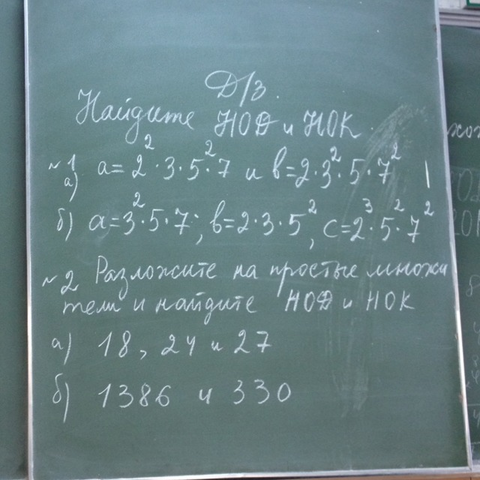 Д/З.
Найдите НОД и НОК.
№1
а) a=2²·3·5²·7 и b=2·3²·5·7²
б) a=3²·5·7; b=2·3·5², c=2³·5²·7²
№2 Разложите на простые множи
тели и найдите НОД и НОК
а) 18, 24 и 27
б) 1386 и 330